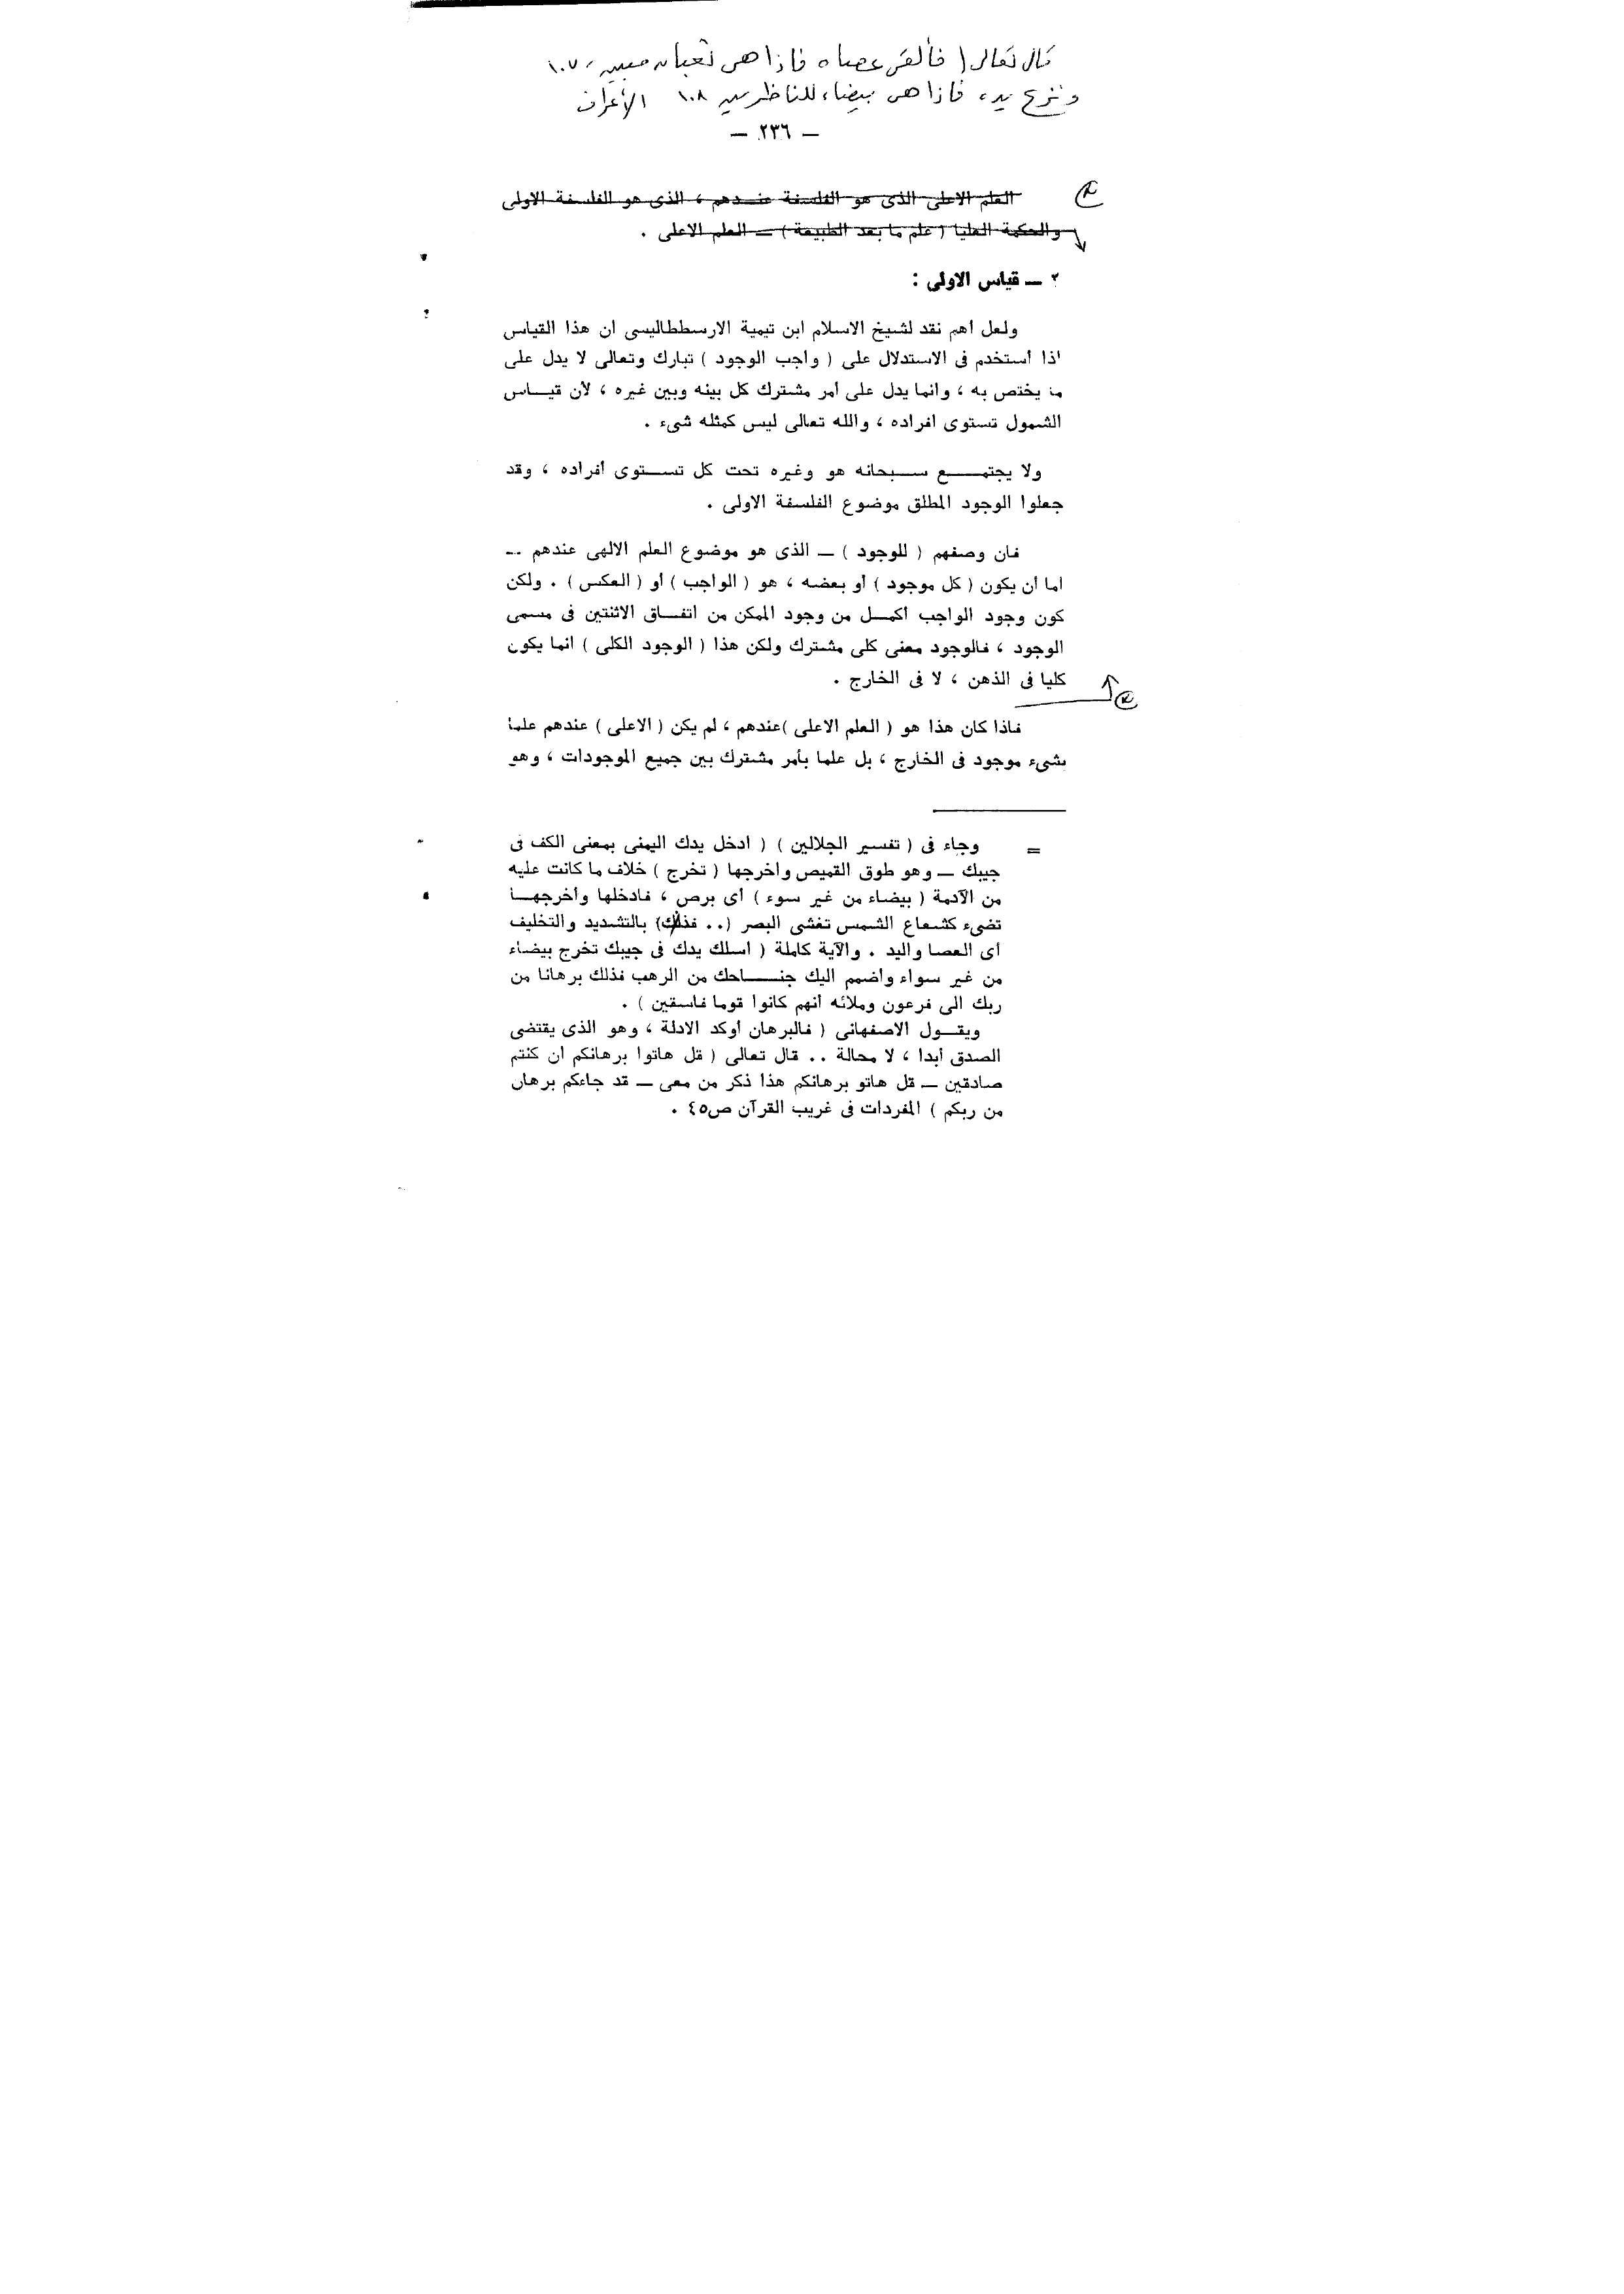 قال تعالى ( فألقى عصاه فإذا هى ثعبان مبين ١٠٧
ونزع يده فإذا هى بيضاء للناظرين ١٠٨ الأعراف
— ٢٣٦ —
العلم الاعلى الذى هو الفلسفة عندهم ، الذى هو الفلسفة الاولى
والحكمة العليا ( علم ما بعد الطبيعة ) — العلم الاعلى .
٢ — قياس الاولى :
ولعل أهم نقد لشيخ الاسلام ابن تيمية الارسططاليسى ان هذا القياس
اذا أستخدم فى الاستدلال على ( واجب الوجود ) تبارك وتعالى لا يدل على
ما يختص به ، وانما يدل على أمر مشترك كل بينه وبين غيره ، لأن قياس
الشمول تستوى افراده ، والله تعالى ليس كمثله شىء .
ولا يجتمع سبحانه هو وغيره تحت كل تستوى أفراده ، وقد
جعلوا الوجود المطلق موضوع الفلسفة الاولى .
فان وصفهم ( للوجود ) — الذى هو موضوع العلم الالهى عندهم —
اما أن يكون ( كل موجود ) أو بعضه ، هو ( الواجب ) أو ( العكس ) . ولكن
كون وجود الواجب أكمل من وجود الممكن من اتفاق الاثنتين فى مسمى
الوجود ، فالوجود معنى كلى مشترك ولكن هذا ( الوجود الكلى ) انما يكون
كليا فى الذهن ، لا فى الخارج .
فاذا كان هذا هو ( العلم الاعلى )عندهم ، لم يكن ( الاعلى ) عندهم علما
بشىء موجود فى الخارج ، بل علما بأمر مشترك بين جميع الموجودات ، وهو
= وجاء فى ( تفسير الجلالين ) ( ادخل يدك اليمنى بمعنى الكف فى
جيبك — وهو طوق القميص واخرجها ( تخرج ) خلاف ما كانت عليه
من الآدمة ( بيضاء من غير سوء ) أى برص ، فادخلها وأخرجها
تضىء كشعاع الشمس تغشى البصر (.. فذلك) بالتشديد والتخليف
أى العصا واليد . والآية كاملة ( اسلك يدك فى جيبك تخرج بيضاء
من غير سواء واضمم اليك جناحك من الرهب فذلك برهانا من
ربك الى فرعون وملائه أنهم كانوا قوما فاسقين ) .
ويقول الاصفهانى ( فالبرهان أوكد الادلة ، وهو الذى يقتضى
الصدق أبدا ، لا محالة .. قال تعالى ( قل هاتوا برهانكم ان كنتم
صادقين — قل هاتو برهانكم هذا ذكر من معى — قد جاءكم برهان
من ربكم ) المفردات فى غريب القرآن ص٤٥ .